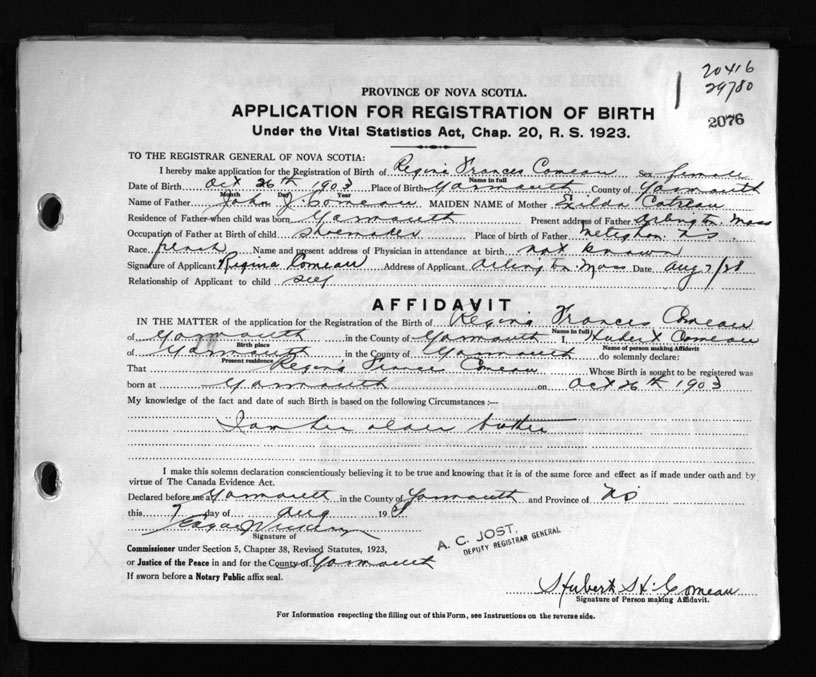 20416
29780
2076
PROVINCE OF NOVA SCOTIA.
APPLICATION FOR REGISTRATION OF BIRTH
Under the Vital Statistics Act, Chap. 20, R. S. 1923.
TO THE REGISTRAR GENERAL OF NOVA SCOTIA:
I hereby make application for the Registration of Birth of Regina Frances Comeau Sex female
Name in full
Date of Birth Oct 26th 1903 Place of Birth Yarmouth County of Yarmouth
Month Day Year
Name of Father John J. Comeau MAIDEN NAME of Mother Exilda
Residence of Father when child was born Yarmouth Present address of Father Arlington Mass
Occupation of Father at Birth of child shoemaker Place of birth of Father Meteghan NS
Race french Name and present address of Physician in attendance at birth not known
Signature of Applicant Regina Comeau Address of Applicant Arlington Mass Date Aug 7/28
Relationship of Applicant to child self
AFFIDAVIT
IN THE MATTER of the application for the Registration of the Birth of Regina Frances Comeau
Name in full
of Yarmouth in the County of Yarmouth I, Hubert Comeau
Birth place
Name of person making Affidavit
of Yarmouth in the County of Yarmouth do solemnly declare:
Present residence
That Regina Frances Comeau Whose Birth is sought to be registered was
born at Yarmouth on Oct 26th 1903
My knowledge of the fact and date of such Birth is based on the following Circumstances :—
I am her older brother
I make this solemn declaration conscientiously believing it to be true and knowing that it is of the same force and effect as if made under oath and by
virtue of The Canada Evidence Act.
Declared before me at Yarmouth in the County of Yarmouth and Province of NS
this 7 day of Aug 19
Signature of
Commissioner under Section 5, Chapter 38, Revised Statutes, 1923,
or Justice of the Peace in and for the County of Yarmouth
If sworn before a Notary Public affix seal.
A. C. JOST.
DEPUTY REGISTRAR GENERAL
Hubert H. Comeau
Signature of Person making Affidavit.
For Information respecting the filling out of this Form, see Instructions on the reverse side.